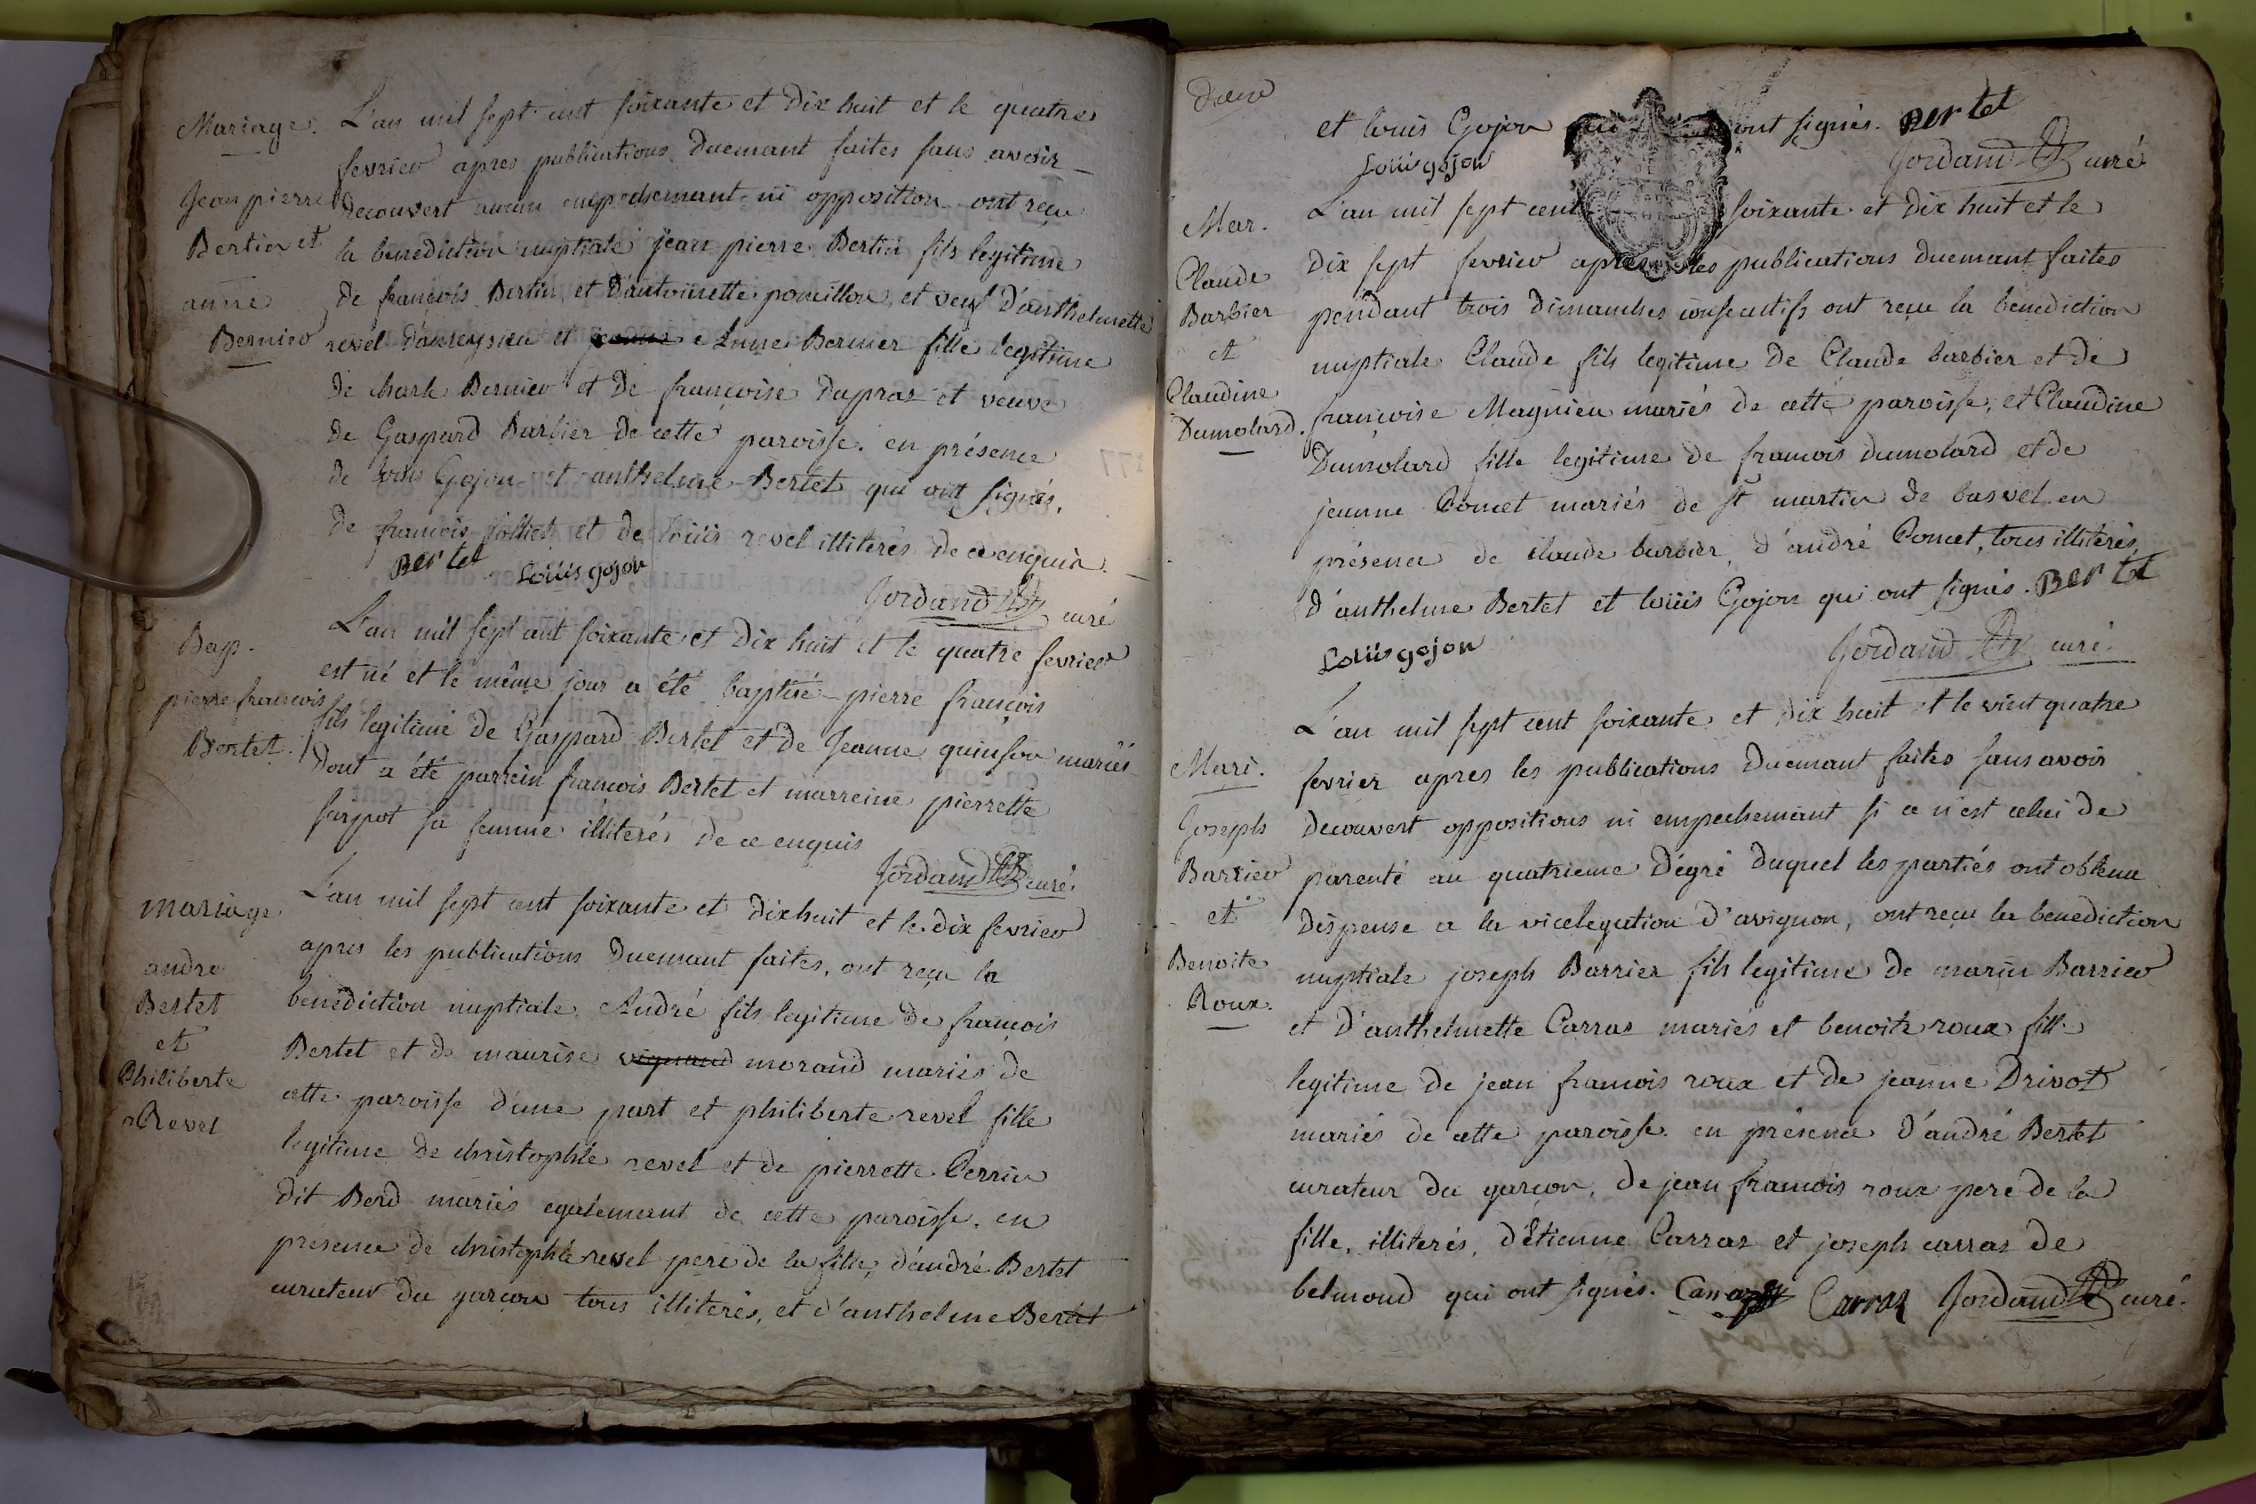 Mariage.
Jean pierre
Bertin et
anne
Bernier
L'an mil sept cent soixante et dix huit et le quatre
fevrier apres publications duemant faites sans avoir
decouvert aucun empechemant ni opposition ont reçu
la benediction nuptiale jean pierre Bertin fils legitime
de françois Bertin et d'antoinette poncillon et veuf d'anthelmette
revel et Anne Bernier fille legitime
de charle Bernier et de françoise dupraz et veuve
de Gaspard Barbier de cette paroisse. en présence
de louis Gojon et anthelme Bertet qui ont signés,
de francois et de louis revel illiterés de ce enquis.
Bertet Louis gojon
Jordand curé
Bap.
pierre francois
Bertet.
L'an mil sept cent soixante et dix huit et le quatre fevrier
est né et le même jour a été baptisé pierre françois
fils legitime de Gaspard Bertet et de Jeanne quinson mariés
dont a été parrein francois Bertet et marreine pierrette
sa femme illiterés de ce enquis
Jordand curé.
mariage
andre
Bertet
et
Philiberte
Revel
L'an mil sept cent soixante et dix huit et le dix fevrier
apres les publications duemant faites, ont reçu la
benediction nuptiale André fils legitime de francois
Bertet et de maurise morand mariés de
cette paroisse d'une part et philiberte revel fille
legitime de christophle revel et de pierrette Perrin
dit Berd mariés egalemant de cette paroisse. en
presence de christophle revel pere de la fille, d'andré Bertet
curateur du garçon tous illiterés, et d'anthelme Bertet
et louis Gojon qui ont signés. Bertet
Louis gojon
Jordand curé
Mar.
Claude
Barbier
et
Claudine
Dumolard.
L'an mil sept cent soixante et dix huit et le
dix sept fevrier apres les publications duemant faites
pendant trois dimanches consecutifs ont reçu la benediction
nuptiale Claude fils legitime de Claude barbier et de
françoise Magnieu mariés de cette paroisse, et Claudine
Dumolard fille legitime de francois dumolard et de
jeanne Poncet mariés de st martin de bavel en
présence de claude barbier, d'andré Poncet, tous illiterés,
d'anthelme Bertet et louis Gojon qui ont signés. Bertet
Louis gojon
Jordand curé.
Mari.
Joseph
Barrier
et
Benoite
Roux.
L'an mil sept cent soixante et dix huit et le vint quatre
fevrier apres les publications duemant faites sans avoir
decouvert oppositions ni empechemant si ce n'est celui de
parenté au quatrieme dégré duquel les partiés ont obtenu
dispense a la vicelegation d'avignon, ont reçu la benediction
nuptiale joseph Barrier fils legitime de marin Barrier
et d'anthelmette Carraz mariés et benoite roux fille
legitime de jean francois roux et de jeanne Drivot
mariés de cette paroisse. en présence d'andré Bertet
curateur du garçon, de jean francois roux pere de la
fille, illiterés, d'Etienne Carraz et joseph carraz de
belmond qui ont signés. Carraz Carraz Jordand curé.